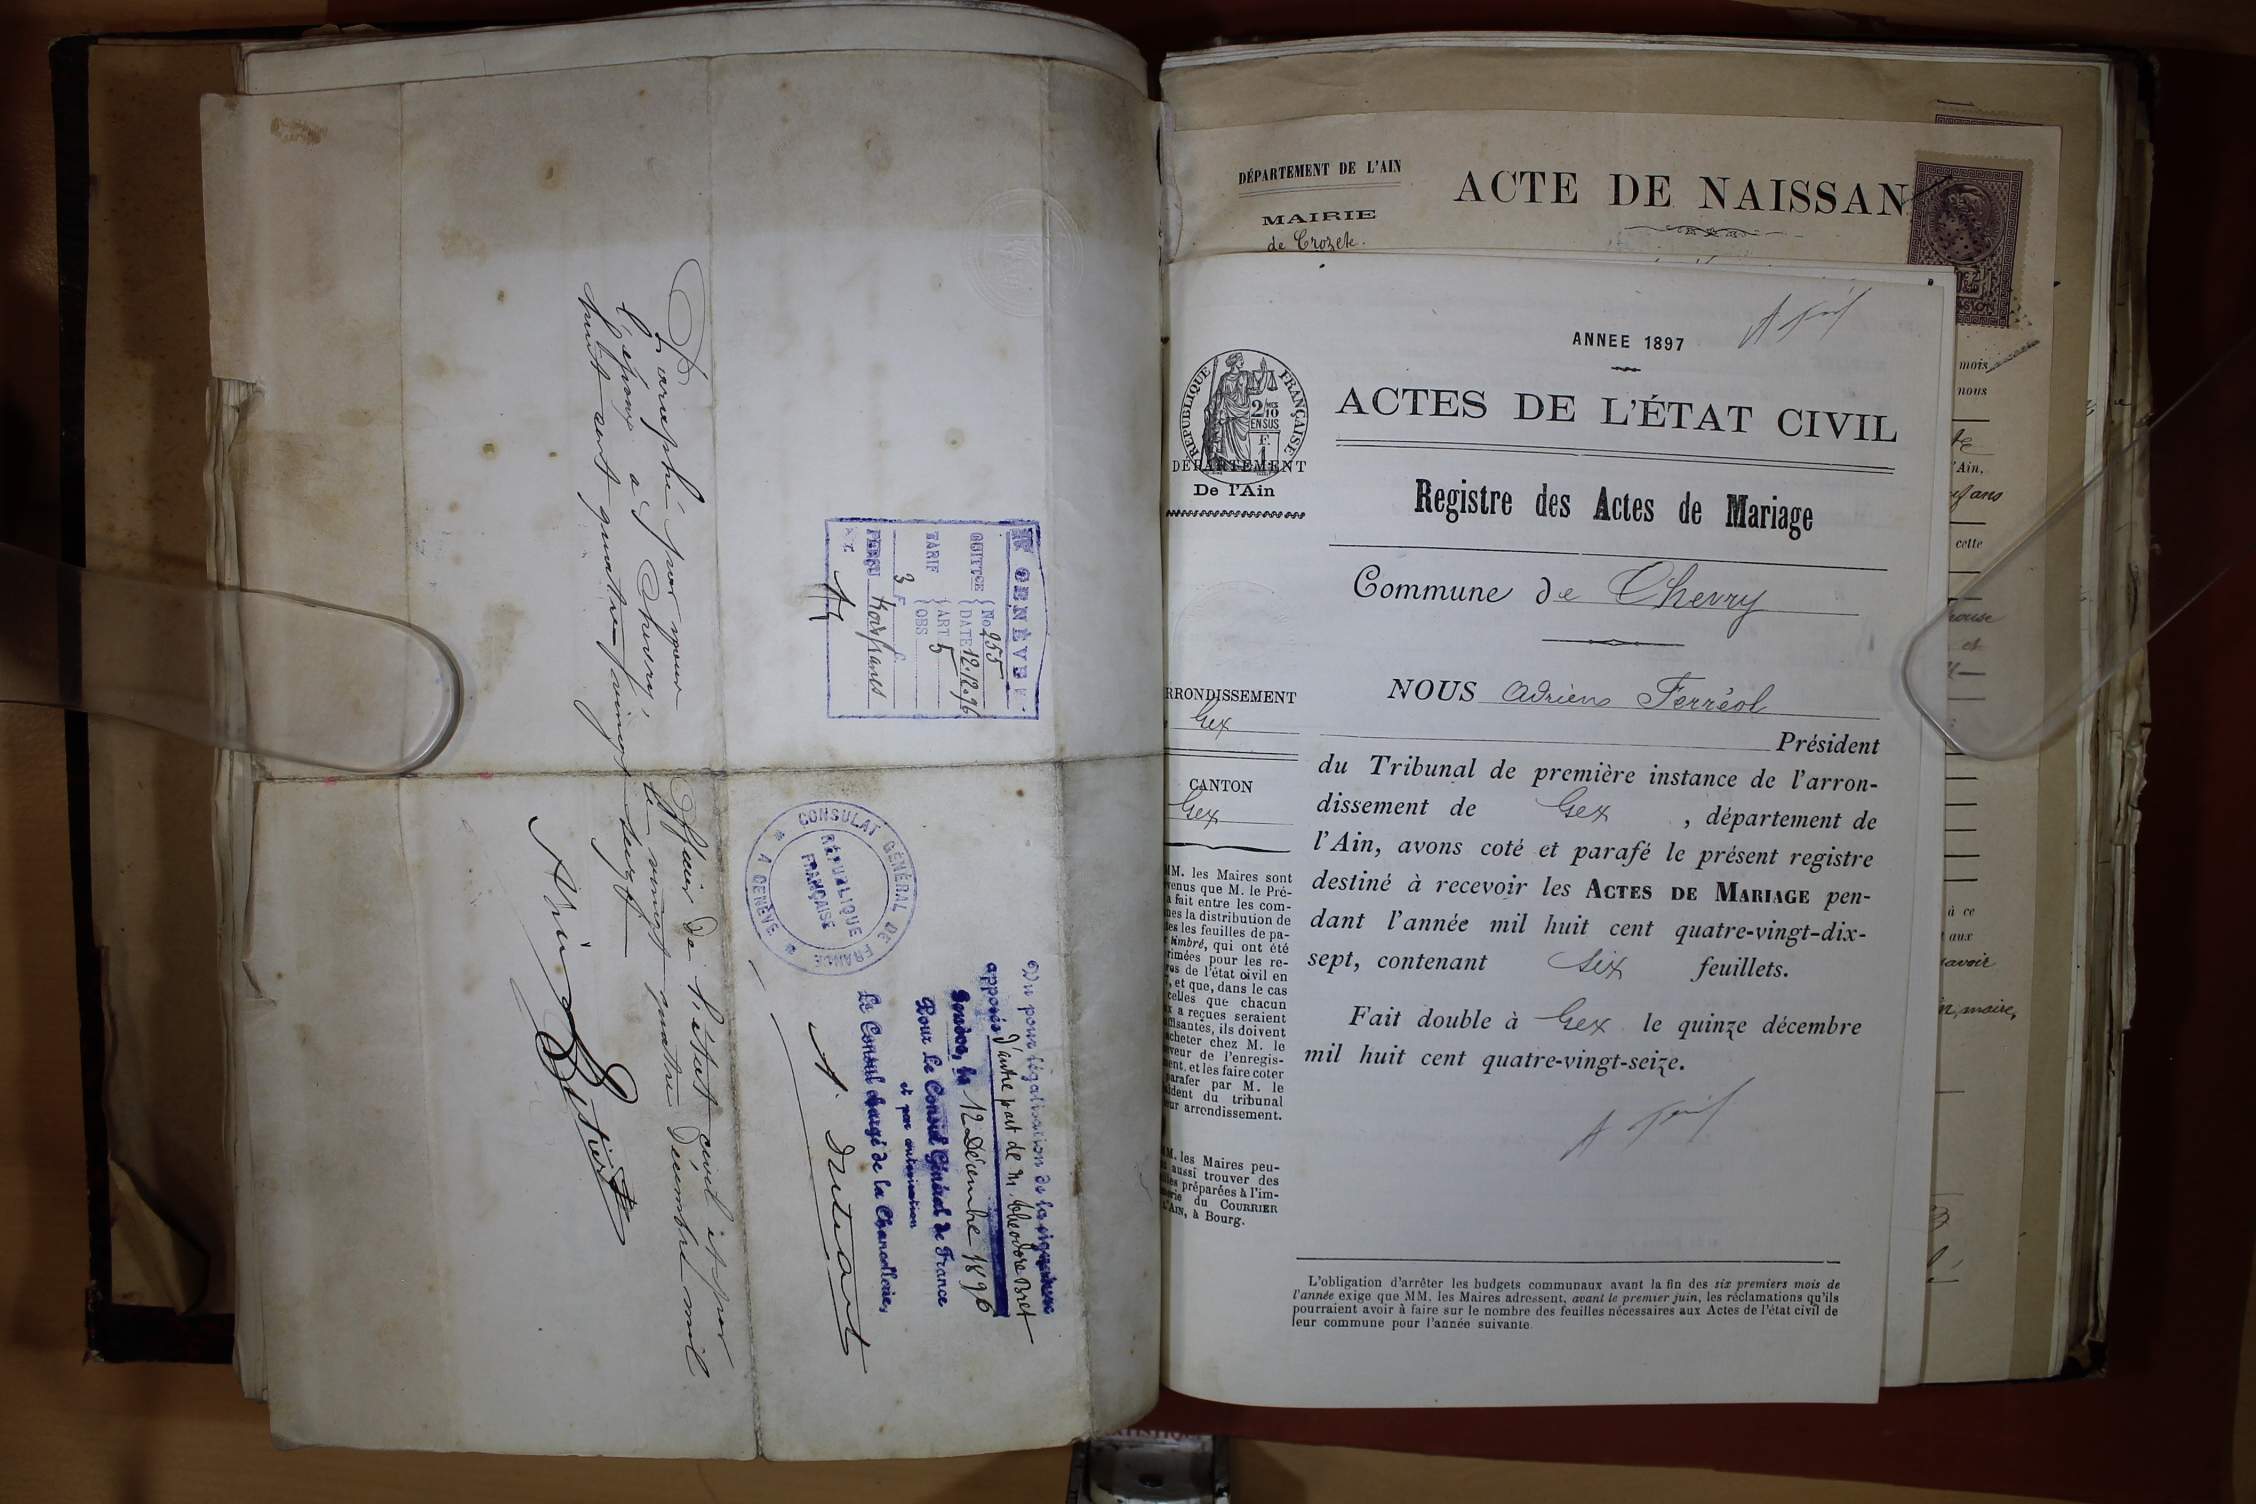 Paraphé par nous Officier de l'état civil et par
l'époux à Chevry, le vingt quatre Décembre mil
huit cent quatre-vingt seize
GENÈVE
QUITTCE No 255
DATE 12.12.96
TARIF ART 5
OBS
3 F. C.
PERÇU trois francs
CONSULAT GÉNÉRAL DE FRANCE
A GENÈVE
RÉPUBLIQUE
FRANÇAISE
Vu pour légalisation de la signature
apposée d'autre part de M. Théodore Bret
Genève, le 12 Décembre 1896
Pour Le Consul Général de France
et par autorisation
Le Consul chargé de la Chancellerie,
DÉPARTEMENT DE L'AIN
MAIRIE
de Crozet.
ACTE DE NAISSAN
mois
nous
'Ain,
ans
cette
épouse
et
à ce
aux
savoir
maire,
ANNEE 1897
RÉPUBLIQUE FRANÇAISE
2/10 MES
EN SUS
F.
1
ACTES DE L'ÉTAT CIVIL
DÉPARTEMENT
De l'Ain
Registre des Actes de Mariage
Commune de Chevry
RRONDISSEMENT
Gex
CANTON
Gex
NOUS Adrien Ferréol
Président
du Tribunal de première instance de l'arron-
dissement de Gex, département de
l'Ain, avons coté et parafé le présent registre
destiné à recevoir les ACTES DE MARIAGE pen-
dant l'année mil huit cent quatre-vingt-dix-
sept, contenant six feuillets.
Fait double à Gex le quinze décembre
mil huit cent quatre-vingt-seize.
MM. les Maires sont
venus que M. le Pré-
a fait entre les com-
nes la distribution de
tes les feuilles de pa-
r timbré, qui ont été
rimées pour les re-
res de l'état civil en
, et que, dans le cas
celles que chacun
x a reçues seraient
ffisantes, ils doivent
acheter chez M. le
eveur de l'enregis-
ment, et les faire coter
parafer par M. le
sident du tribunal
eur arrondissement.
MM. les Maires peu-
t aussi trouver des
illes préparées à l'im-
merie du COURRIER
L'AIN, à Bourg.
L'obligation d'arrêter les budgets communaux avant la fin des six premiers mois de
l'année exige que MM. les Maires adressent, avant le premier juin, les réclamations qu'ils
pourraient avoir à faire sur le nombre des feuilles nécessaires aux Actes de l'état civil de
leur commune pour l'année suivante.